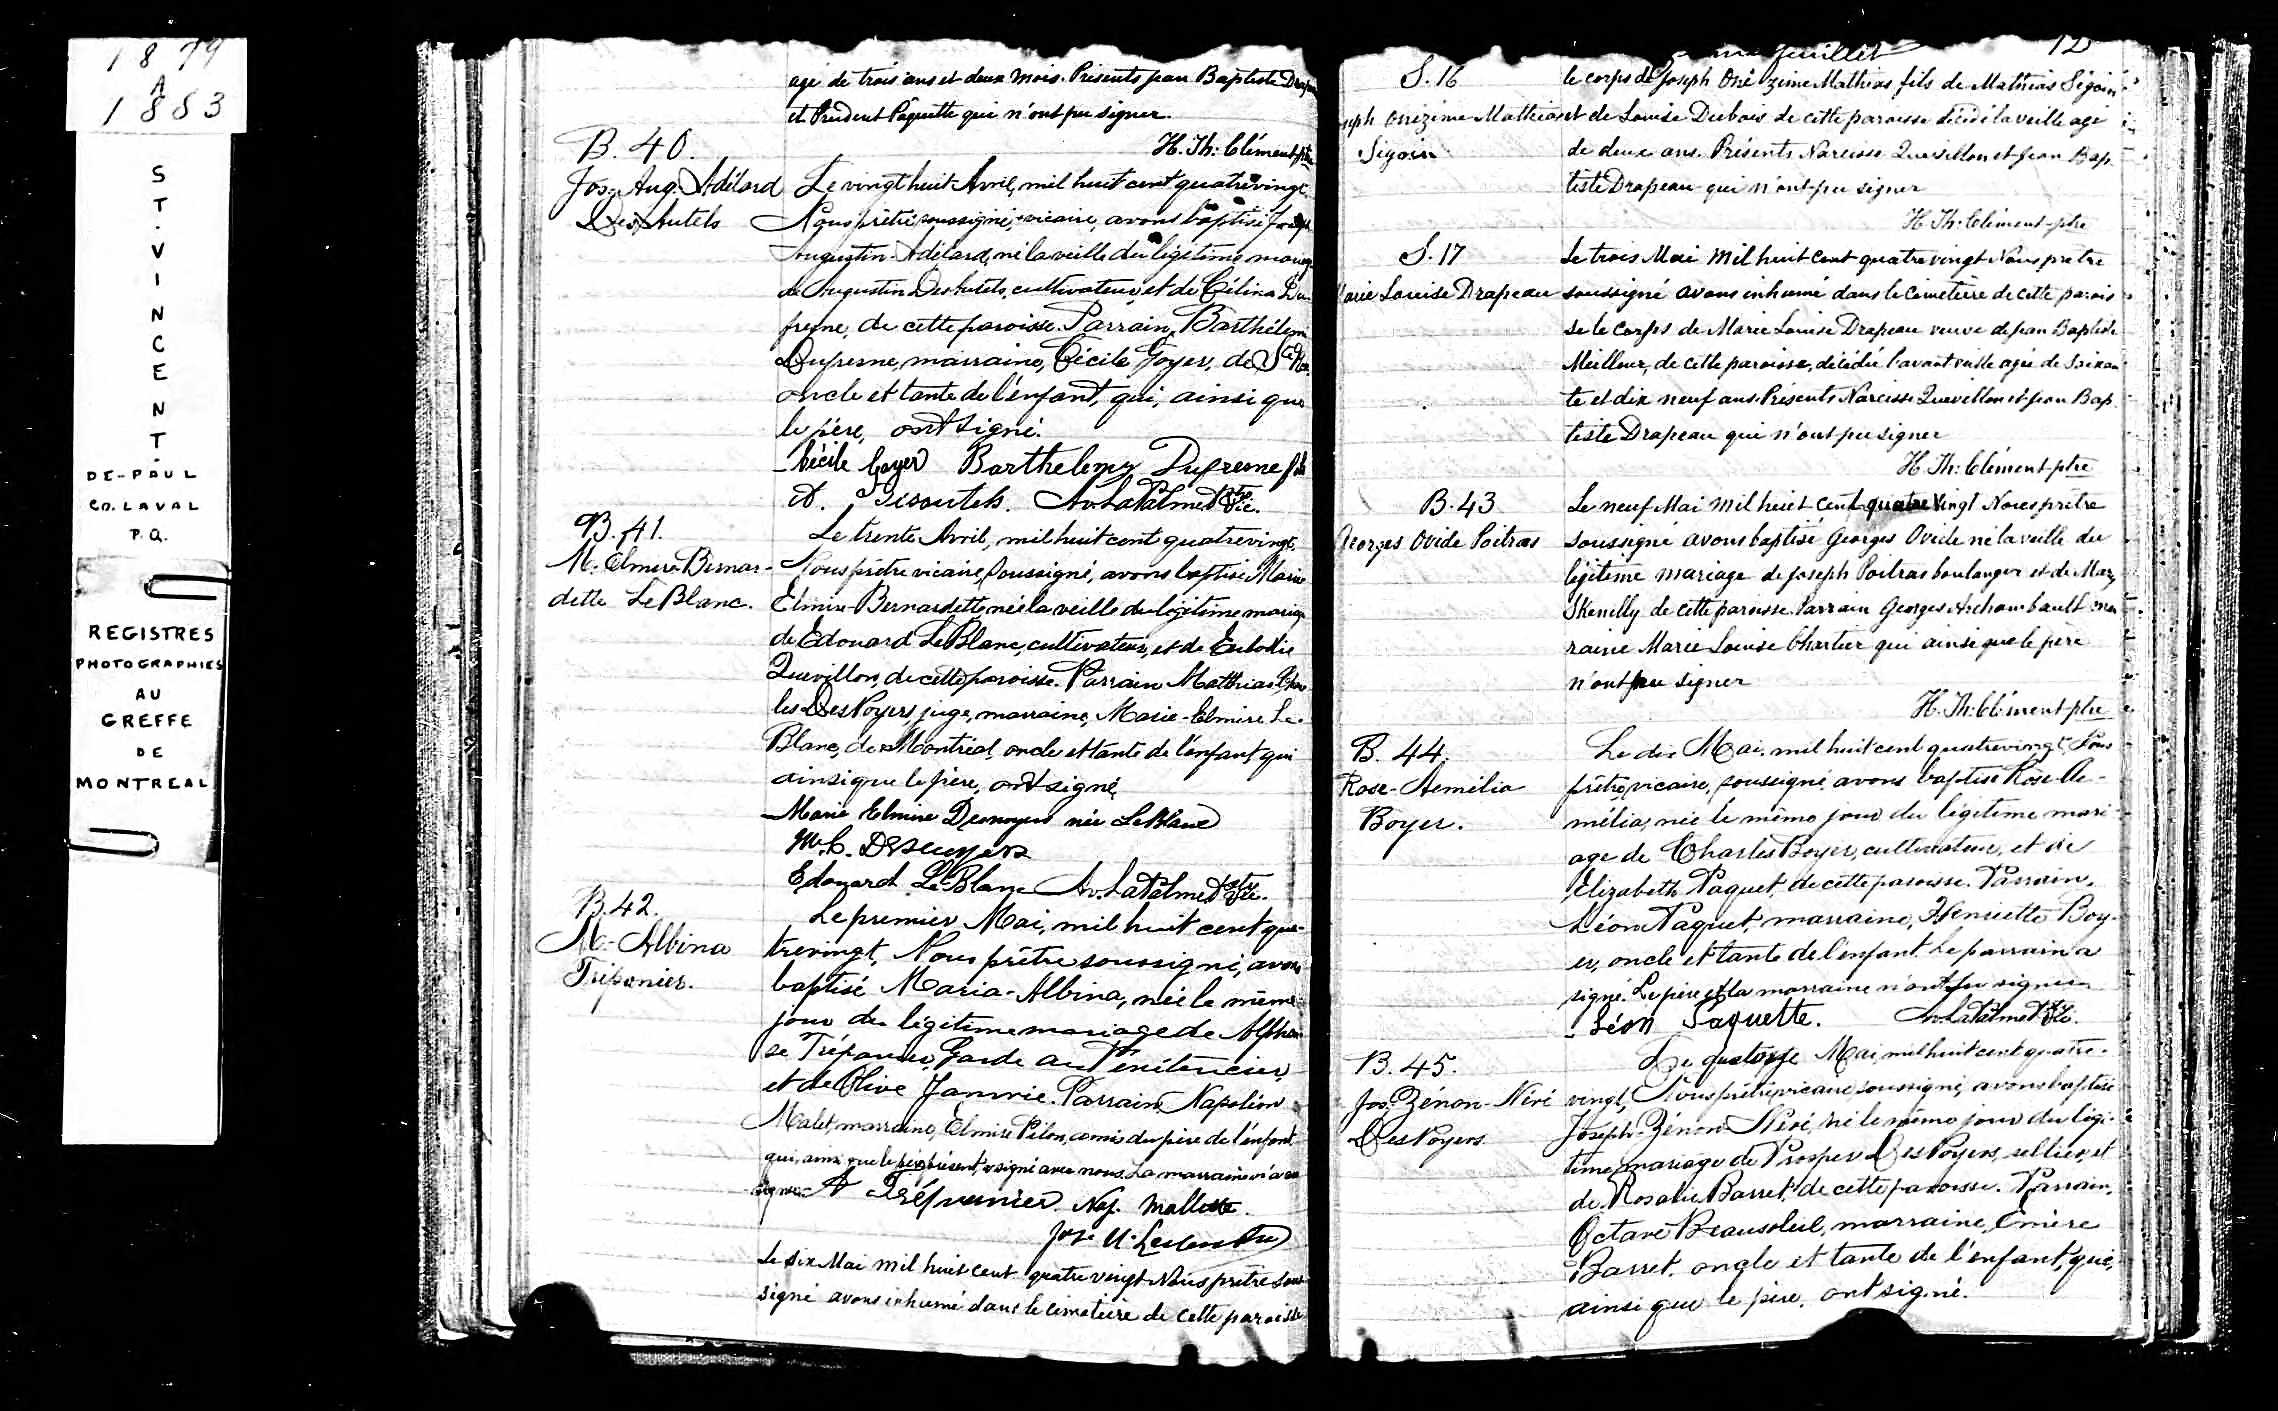 1879
A
1883
ST. VINCENT.
DE-PAUL
CO. LAVAL
P.Q.
REGISTRES
PHOTOGRAPHIES
AU
GREFFE
DE
MONTREAL
agé de trois ans et deux mois. Présents Jean Baptiste
et Prudent Paquette qui n'ont pu signer.
H. Th: Clément ptre
B. 40.
Jos. Aug. Adélard
DesAutels
Le vingt huit Avril, mil huit cent quatrevingt.
Nous prêtre soussigné, vicaire, avons baptisé Joseph
Augustin-Adélard, né la veille du légitime mariage
de Augustin DesAutels, cultivateur, et de Célina Du-
fresne, de cette paroisse. Parrain, Barthélemi
Dufresne, marraine, Cécile Goyer, de Ste
oncle et tante de l'enfant, qui, ainsi que
le père, ont signé.
Cécile Goyer Barthelemy Dufresne fils
A. Av. LaPalme Ptre Vic.
B. 41.
M. Elmire Bernar-
dette LeBlanc.
Le trente Avril, mil huit cent quatrevingt,
Nous prêtre vicaire, soussigné, avons baptisé Marie
Elmire-Bernardette née la veille du légitime mariage
de Edouard LeBlanc, cultivateur, et de Eulodie
Quevillon, de cette paroisse. Parrain Matthias Char
les DesNoyers, juge, marraine, Marie-Elmire Le-
Blanc, de Montréal, oncle et tante de l'enfant qui
ainsi que le père, ont signé
Marie Elmire Desnoyers née LeBlanc
M. C. Desnoyers
Edouard LeBlanc Av. LaPalme Ptre Vic.
B. 42.
M.- Albina
Trépanier.
Le premier Mai, mil huit cent qua-
trevingt, Nous prêtre soussigné, avons
baptisé Maria-Albina, née le même
jour du légitime mariage de Alphon
se Trépanier, Garde au Pénitencier,
et de Olive Jannie. Parrain, Napoléon
Malet, marraine, Elmire Pilon, amis du père de l'enfant
qui, ainsi que le présent, a signé avec nous. La marraine n'a su
signer. A Trépannier Nap. Mallette.
Jos. U.
Le six Mai mil huit cent quatre vingt Nous prêtre sous
signé avons inhumé dans le cimetière de cette paroisse
feuillet
12
S. 16
Joseph Onézime Mathias
Sigoin
le corps de Joseph Onézime Mathias fils de Mathias Sigoin
et de Louise Dubois de cette paroisse décédé la veille agé
de deux ans. Présents Narcisse Quevillon et Jean Bap
tiste Drapeau qui n'ont pu signer
H. Th: Clément ptre
S. 17
Marie Louise Drapeau
Le trois Mai mil huit cent quatre vingt Nous prêtre
soussigné avons inhumé dans le cimetière de cette parois
se le corps de Marie Louise Drapeau veuve de Jean Baptiste
Meilleur, de cette paroisse, décédée l'avant veille agée de soixan
te et dix neuf ans Présents Narcisse Quevillon et Jean Bap
tiste Drapeau qui n'ont pu signer
H. Th: Clément ptre
B. 43
Georges Ovide Poitras
Le neuf Mai mil huit cent quatre vingt Nous prêtre
soussigné avons baptisé Georges Ovide né la veille du
légitime mariage de Joseph Poitras boulanger et de Mary
Skenilly de cette paroisse. Parrain Georges Archambault mar
raine Marie Louise Chartier qui ainsi que le père
n'ont pu signer
H. Th. Clément ptre
B. 44.
Rose- Aemélia
Boyer.
Le dix Mai, mil huit cent quatrevingt, Nous
prêtre, vicaire, soussigné, avons baptisé Rose Ae-
mélia, née le même jour du légitime mari-
age de Charles Boyer, cultivateur, et de
Elizabeth Paquet de cette paroisse. Parrain,
Léon Paquet, marraine, Henriette Boy-
er, oncle et tante de l'enfant. Le parrain a
signé. Le père et la marraine n'ont pu signer
Léon Paquette. Av. LaPalme Ptre Vic.
B. 45.
Jos. Zénon-Néré
DesNoyers
Le quatorze Mai, mil huit cent quatre-
vingt, Nous prêtre vicaire soussigné, avons baptisé
Joseph-Zénon-Néré, né le même jour du légi-
time mariage de Prosper DesNoyers, sellier, et
de Rosalie Barret, de cette paroisse. Parrain,
Octave Beausoleil, marraine, Emère
Barret, oncle et tante de l'enfant, qui,
ainsi que le père, ont signé.